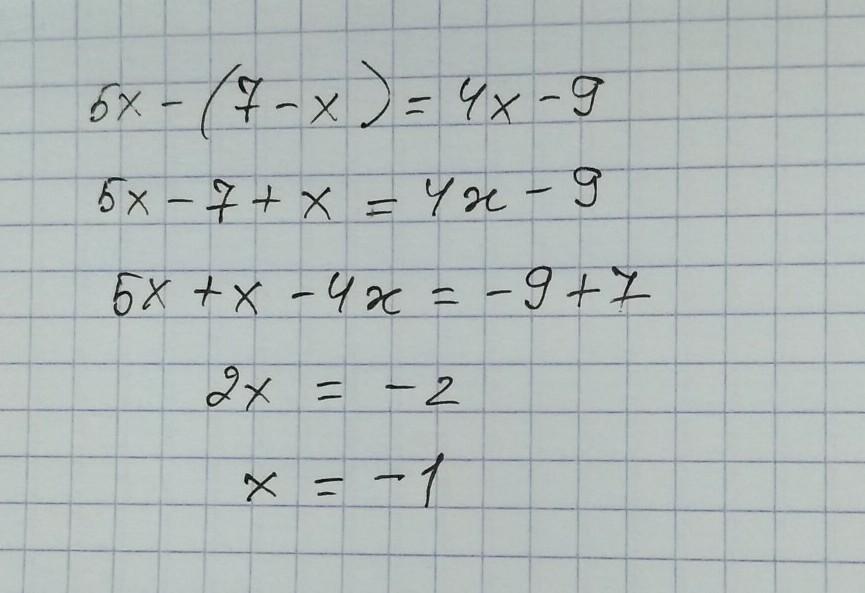 5x - (7 - x) = 4x - 9
5x - 7 + x = 4x - 9
5x + x - 4x = -9 + 7
2x = -2
x = -1